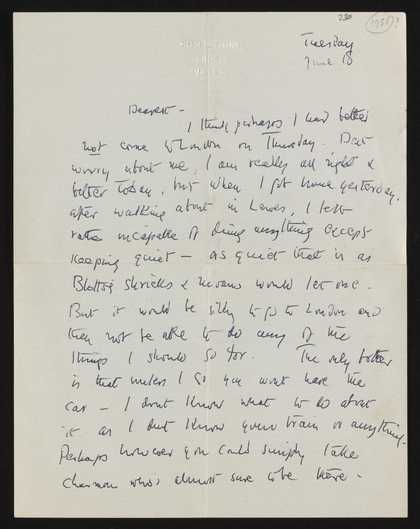 230
(195?)
Tuesday
June 18
Dearest -
I think perhaps I had better
not come to London on Thursday. Don't
worry about me, I am really all right &
better today, but when I got home yesterday,
after walking about in Lewes, I felt
rather incapable of doing anything except
keeping quiet - as quiet that is as
shrieks & moans would let me.
But it would be silly to go to London and
then not be able to do any of the
things I should go for. The only bother
is that unless I go you wont have the
car - I dont know what to do about
it as I dont know your train or anything.
Perhaps however you could simply take
chairman who's almost sure to be there.